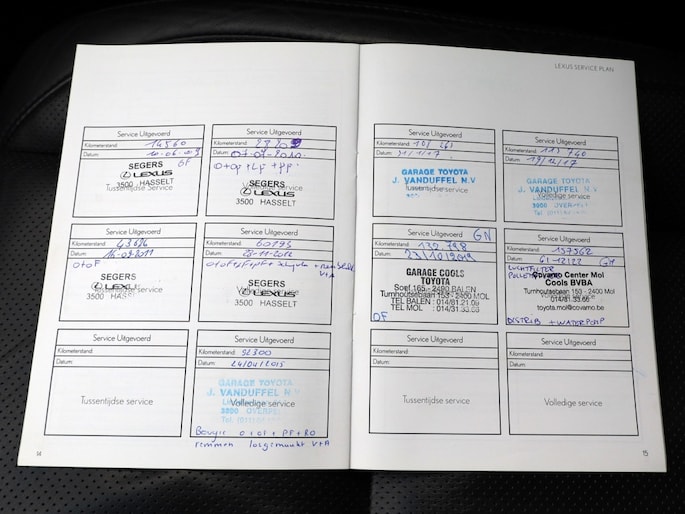 LEXUS SERVICE PLAN
Service Uitgevoerd
Kilometerstand: 14560
Datum: 10-06-2009
OF
SEGERS
LEXUS
Tussentijdse service
3500 HASSELT
Service Uitgevoerd
Kilometerstand:
Datum: 07-07-2010
SEGERS
LEXUS
Volledige service
3500 HASSELT
Service Uitgevoerd
Kilometerstand: 43686
Datum: 16-09-2011
O+OF
SEGERS
LEXUS
3500 HASSELT
Service Uitgevoerd
Kilometerstand: 60195
Datum:
V+A
SEGERS
LEXUS
3500 HASSELT
Service Uitgevoerd
Kilometerstand:
Datum:
Tussentijdse service
Service Uitgevoerd
Kilometerstand: 92300
Datum: 24/04/2015
GARAGE TOYOTA
J. VANDUFFEL N.V
Volledige service
Bougie O + OF + PF + RO
remmen losgemaakt V+A
14
Service Uitgevoerd
Kilometerstand:
Datum: 31/1/17
GARAGE TOYOTA
J. VANDUFFEL N.V
Tussentijdse service
Service Uitgevoerd
Kilometerstand: 113 740
Datum: 19/12/17
GARAGE TOYOTA
J. VANDUFFEL N.V
Volledige service
Service Uitgevoerd GN
Kilometerstand: 132.798
Datum: 23/10/2019
GARAGE COOLS
TOYOTA
Soef 165 - 2490 BALEN
Turnhoutsebaan 153 - 2400 MOL
TEL BALEN : 014/81.21.09
TEL MOL : 014/31.33.68
OF
Service Uitgevoerd
Kilometerstand: 157562
Datum: GN
LUCHTFILTER
POLLENFILTER
Covamo Center Mol
Cools BVBA
Turnhoutsebaan 153 - 2400 Mol
toyota.mol@covamo.be
DISTRIB + WATERPOMP
Service Uitgevoerd
Kilometerstand:
Datum:
Tussentijdse service
Service Uitgevoerd
Kilometerstand:
Datum:
Volledige service
15